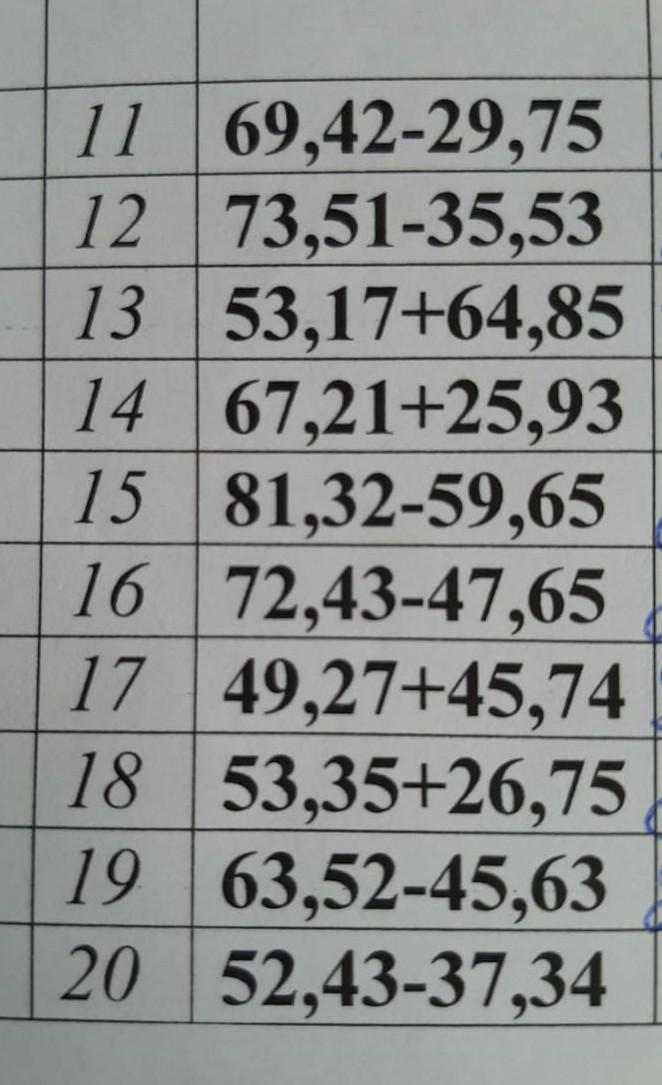 11 69,42-29,75
12 73,51-35,53
13 53,17+64,85
14 67,21+25,93
15 81,32-59,65
16 72,43-47,65
17 49,27+45,74
18 53,35+26,75
19 63,52-45,63
20 52,43-37,34